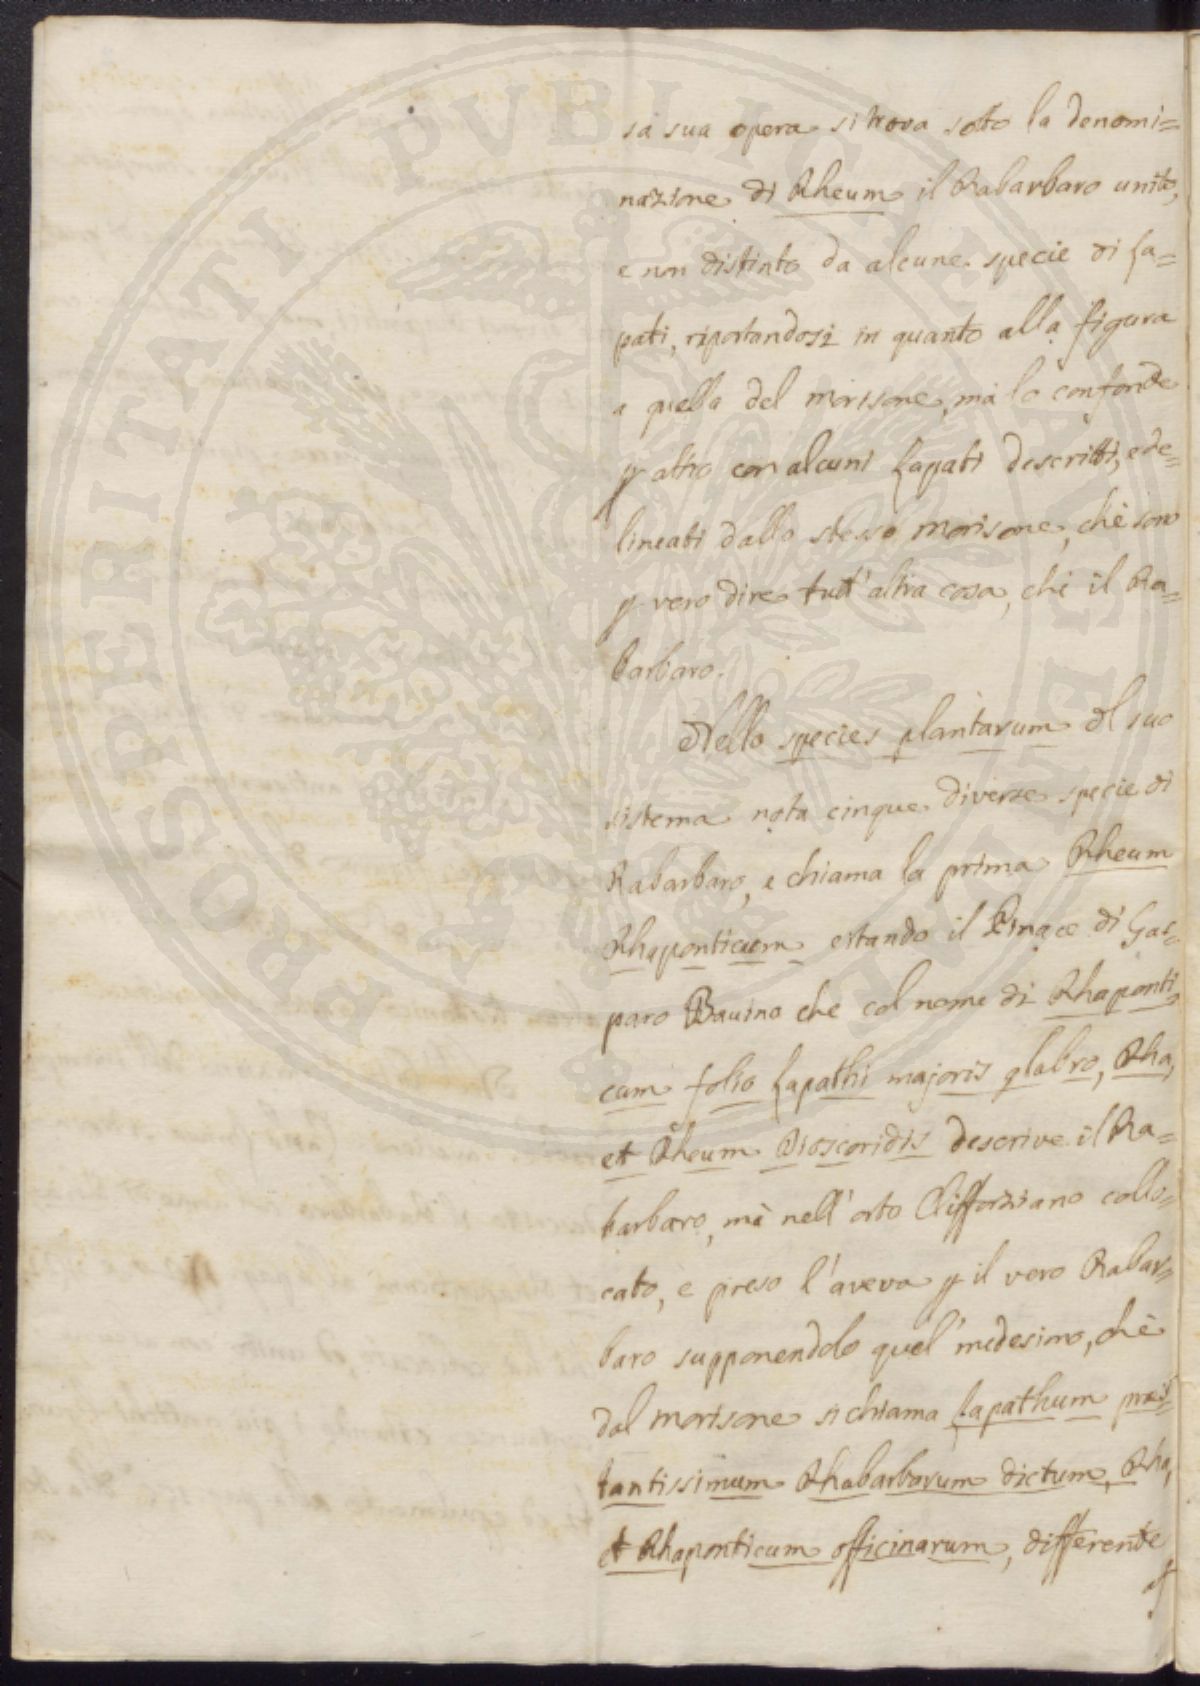 sa sua opera si trova sotto la denomi=
nazione di Rheum il Rabarbaro unito,
e non distinto da alcune specie di La=
pati, riportandosi in quanto alla figura
a quella del Morisone, ma lo confonde
p altro con alcuni Lapati descritti, e de=
lineati dallo stesso Morisone, che sono
p vero dire tutt'altra cosa, che il Ra=
barbaro.
Nello species plantarum del suo
sistema nota cinque diverse specie di
Rabarbaro, e chiama la prima Rheum
Rhaponticum citando il Pinace di Gas=
paro Bauino che col nome di Rhaponti
cum folio Lapathi majoris glabro, Rha,
et Rheum Dioscoridis descrive il Ra=
barbaro, mà nell'orto Cliffortiano collo=
cato, e preso l'aveva p il vero Rabar=
baro supponendolo quel medesimo, che
dal Morisone si chiama Lapathum præs=
tantissimum Rhabarbarum dictum, Rha,
et Rhaponticum officinarum, differente
PROSPERITATI PVBLICAE AVGENDAE